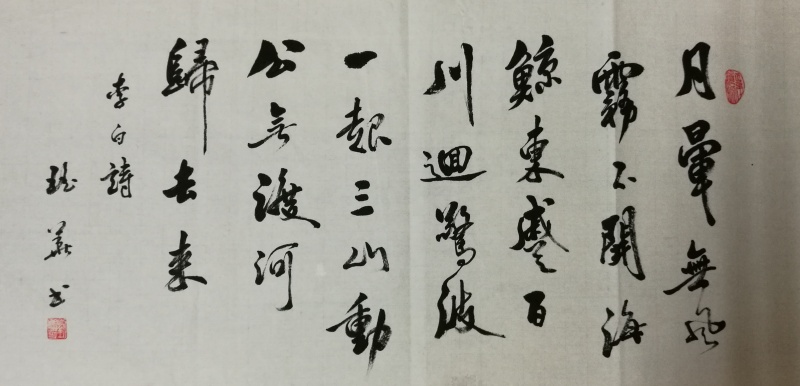 月暈無風
霧不開海
鯨東蹙百
川迴驚波
一起三山動
公无渡河
歸去来
李白詩
书